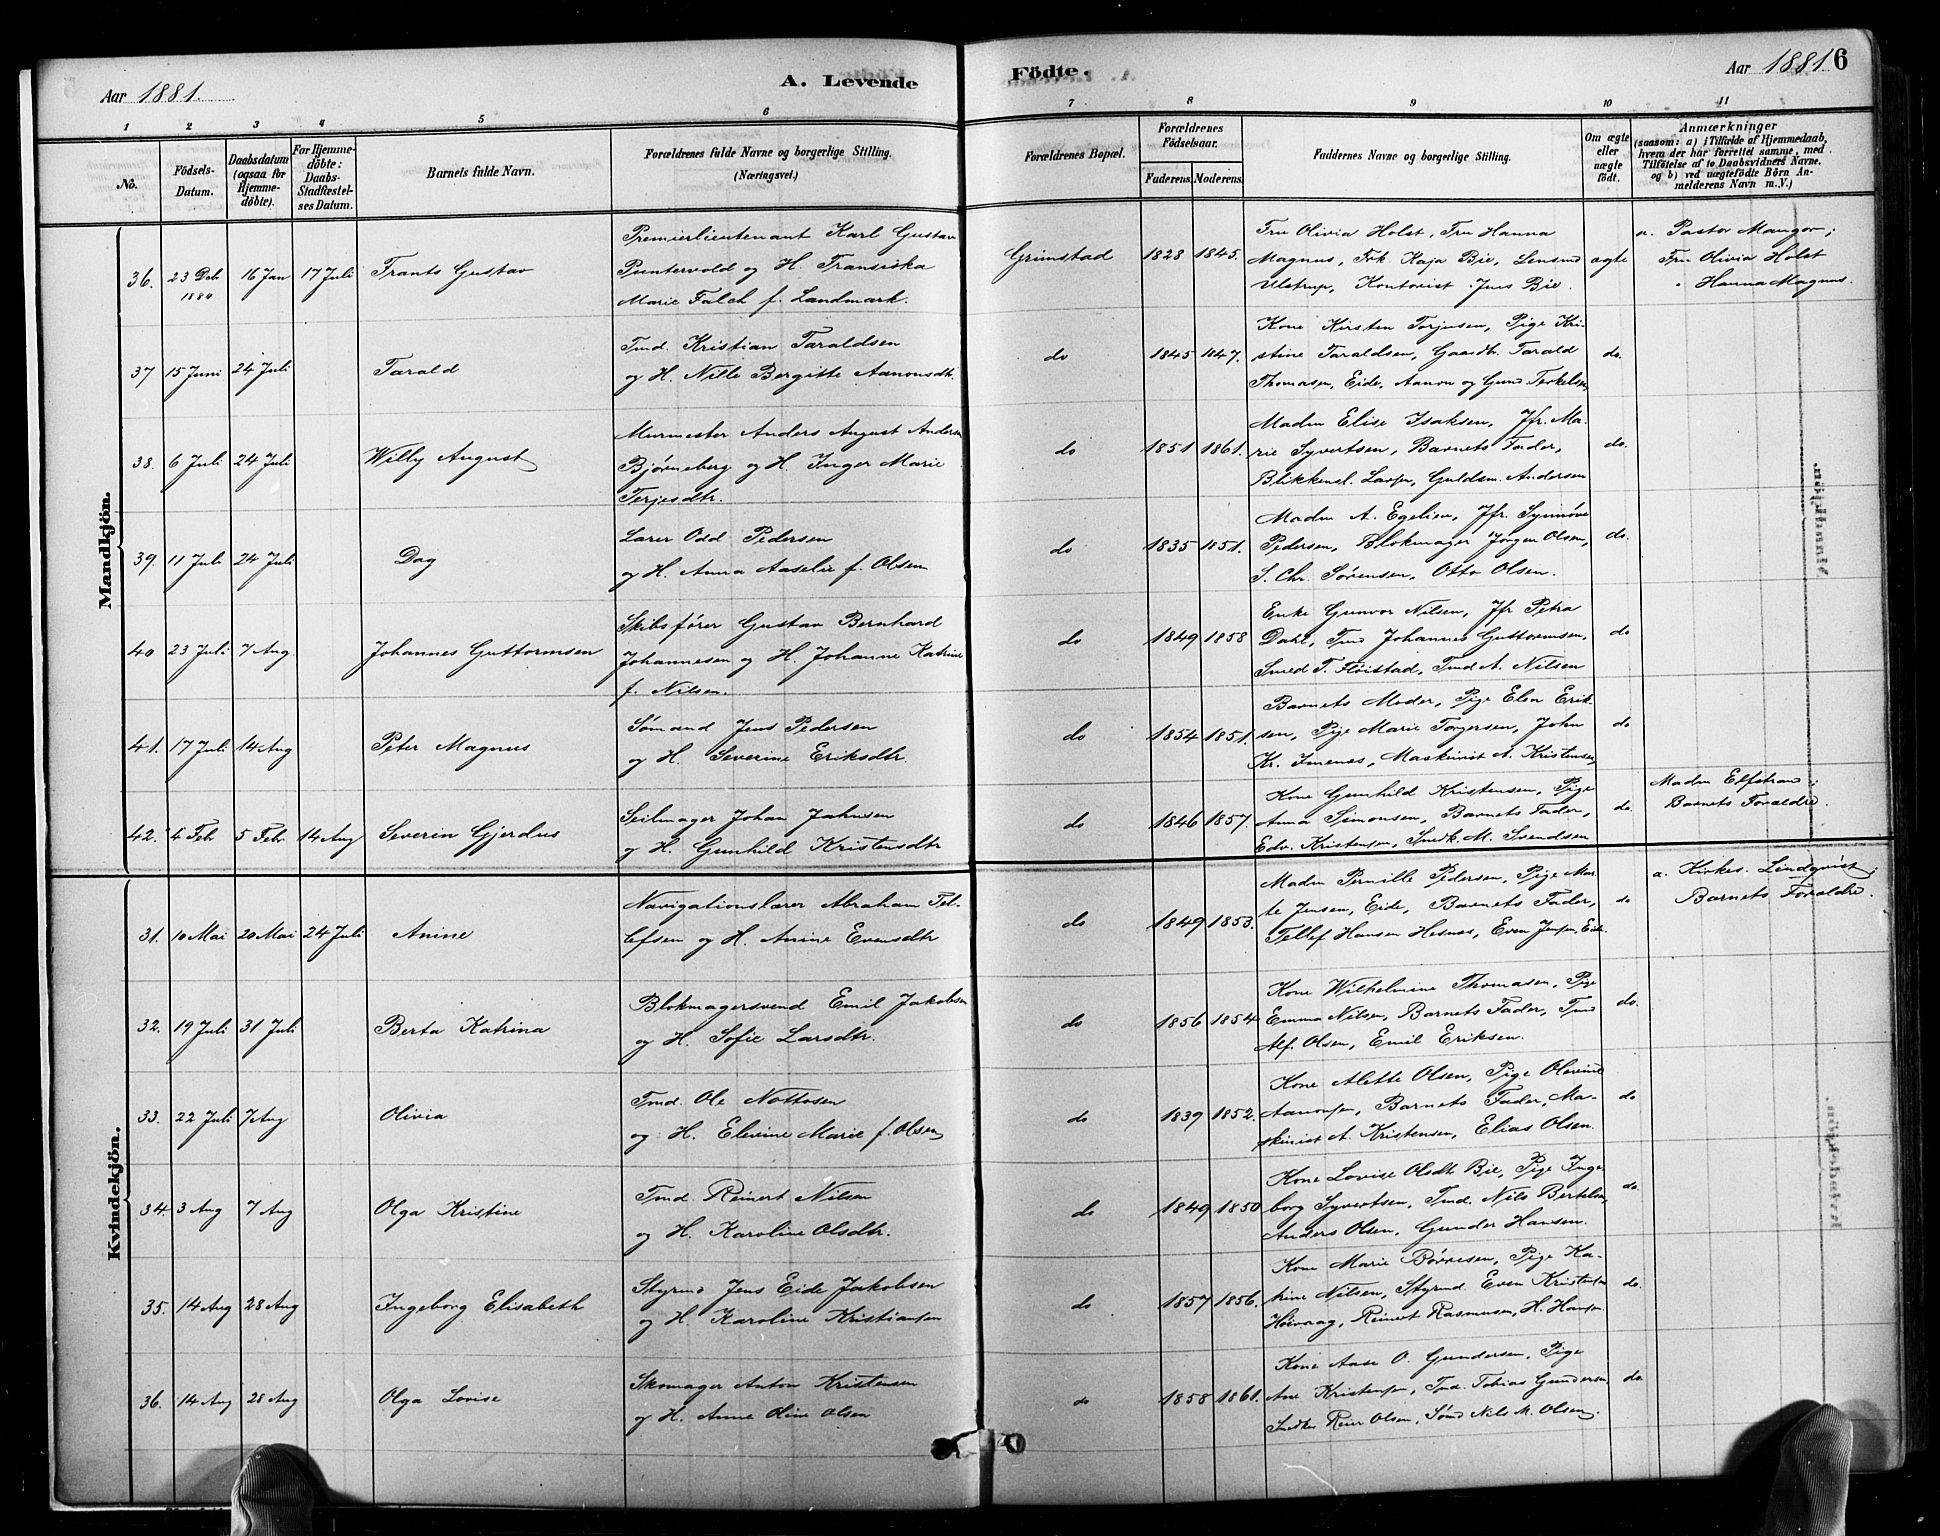 Aar 1881.
A. Levende
Födte.
Aar 1881
6
1 2 3 4 5 6 7 8 9 10 11
No.
Födsels-Datum.
Daabsdatum (ogsaa for Hjemmedöbte).
For Hjemmedöbte: Daabs-Stadfæstelses Datum.
Barnets fulde Navn.
Forældrenes fulde Navne og borgerlige Stilling. (Næringsvei.)
Forældrenes Bopæl.
Forældrenes Födselsaar.
Faderens. Moderens.
Faddernes Navne og borgerlige Stilling.
Om ægte eller uægte födt.
Anmærkninger (saasom: a) i Tilfælde af Hjemmedaab, hvem der har forrettet samme, med Tilföielse af to Daabsvidners Navne. og b) ved uægtefödte Börn Anmelderens Navn m.V.)
Mandkjön.
36. 23 Deb 1880 16 Jan 17 Juli Frants Gustav
Premierlieutenant Karl Gustav
Puntervold og H. Fransiska
Marie Falch f. Landmark.
Grimstad 1828 1845.
Fru Olivia Holst, Fru Hanna
Magnus, Frk. Kaja Bie, Lensmd
Ulstrup, Kontorist Jens Bie.
ægte
a. Pastor Mangor;
Fru Olivia Holst
" Hanna Magnus.
37 15 Juni 24 Juli Tarald
Tmd. Kristian Taraldsen
og H. Nille Bergitte Aanonsdtr.
do 1845 1847.
Kone Kirsten Torjusen, Pige Kri-
stine Taraldsen, Gaardbr. Tarald
Thomasen, Eide, Aanon og Gund Terkelsen
do.
38. 6 Juli 24 Juli Willy August
Murmester Anders August Andersen
Bjørneberg og H. Inger Marie
Terjesdtr.
do 1851 1861.
Madm Elise Isaksen, Jfr. Ma-
rie Syvertsen, Barnets Fader,
Blikkensl. Larsen, Guldsm. Andersen
do.
39. 11 Juli 24 Juli Dag
Lærer Odd Pedersen
og H. Anna Aaselie f. Olsen
do 1835 1851.
Madm A. Egelien, Jfr. Synnøve
Pedersen, Blokmager Jørgen Olsen,
S. Chr. Sørensen, Otto Olsen.
do.
40 23 Juli 7 Aug. Johannes Guttormsen
Skibsfører Gustav Bernhard
Johannesen og H. Johanne Katrine
f. Nilsen.
do 1849 1858
Enke Gunvor Nilsen, Jfr Petra
Dahl, Tmd Johannes Guttormsen,
Smed T. Fløistad, Tmd A. Nilsen
do
41. 17 Juli 14 Aug Peter Magnus
Sømand Jens Pedersen
og H. Severine Eriksdtr.
do 1854 1851.
Barnets Moder, Pige Elen Erik
sen, Pige Marie Torgersen, John
Kr. Imenes, Maskinist A. Kristensen
do
42. 4 Feb 5 Febr 14 Aug Severin Gjerdus
Seilmager Johan Jahnsen
og H. Gunhild Kristensdtr
do 1846 1857.
Kone Gunhild Kristensen, Pige
Anna Simonsen, Barnets Fader,
Edv. Kristensen, Smedk. M. Svendsen
do.
Madm Elfstrand;
Barnets Forældre.
Kvindekjön.
31. 10 Mai 20 Mai 24 Juli Anine
Navigationslærer Abraham Tel-
lefsen og H. Anine Evensdtr
do 1849 1853.
Madm Pernille Pedersen, Pige Mar
te Jensen, Eide, Barnets Fader,
Tellef Hansen Hesnes, Even Jensen, Eide
do
a. Kirkes. Lindqvist;
Barnets Forældre.
32. 19 Juli 31 Juli Berta Katrina
Blokmagersvend Emil Jakobsen
og H. Sofie Larsdtr.
do 1856 1854
Kone Wilhelmine Thomasen, Pige
Emma Nilsen, Barnets Fader, Tmd
Alf. Olsen, Emil Eriksen.
do.
33. 22 Juli 7 Aug Olivia
Tmd. Ole Nottosen
og H. Elevine Marie f. Olsen
do 1839 1852.
Kone Alette Olsen, Pige Olevine
Aanonsen, Barnets Fader, Ma-
skinist A. Kristensen, Elias Olsen.
do
34. 3 Aug 7 Aug Olga Kristine
Tmd. Reinert Nilsen
og H. Karoline Olsdtr.
do 1849 1850
Kone Lovise Olsdt. Bie, Pige Inge
borg Syvertsen, Tmd. Nils Bertelsen
Anders Olsen, Gunder Hansen.
do.
35. 14 Aug 28 Aug Ingeborg Elisabeth
Styrmd Jens Eide Jakobsen
og H. Karoline Kristiansen
do 1857 1856.
Kone Marie Børresen, Pige Ka-
trine Nilsen, Styrmd Even Kristensen
Høivaag, Reinert Rasmusen, H. Hansen
do.
36. 14 Aug 28 Aug Olga Lovise
Skomager Anton Kristensen
og H. Anne Oline Olsen
do 1858 1861.
Kone Aase O. Gundersen, Pige
Ane Kristensen, Tmd. Tobias Gundersen
Smedker Reier Olsen, Sømd Nils M. Olsen.
do.